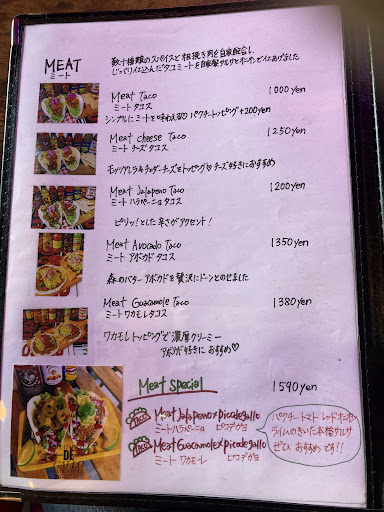 MEAT
ミート
数十種類のスパイスと粗挽き肉を自家配合し、
じっくり仕込んだタコミートを自家製サルサとオニオンで仕上げました
Meat Taco 1000yen
ミート タコス
シンプルにミートを味わえる♡ パクチートッピング+200yen
Meat cheese Taco 1250yen
ミート チーズ タコス
モッツァレラ&チェダーチーズをトッピング♡ チーズ好きにおすすめ
Meat Jalapeno Taco 1200yen
ミート ハラペーニョ タコス
ピリッ!とした辛さがアクセント!
Meat Avocado Taco 1350yen
ミート アボカド タコス
森のバター アボカドを贅沢にドーンとのせました
Meat Guacamole Taco 1380yen
ミート ワカモレ タコス
ワカモレトッピングで濃厚クリーミー
アボカド好きに おすすめ♡
Meat Special 1590yen
TACO Meat Jalapeno×picodegallo
ミート ハラペーニョ ピコデガヨ
TACO Meat Guacamole×picodegallo
ミート ワカモーレ ピコデガヨ
パクチー トマト レッドオニオン
ライムのきいた本格サルサ
ぜひ おすすめです!!
DE